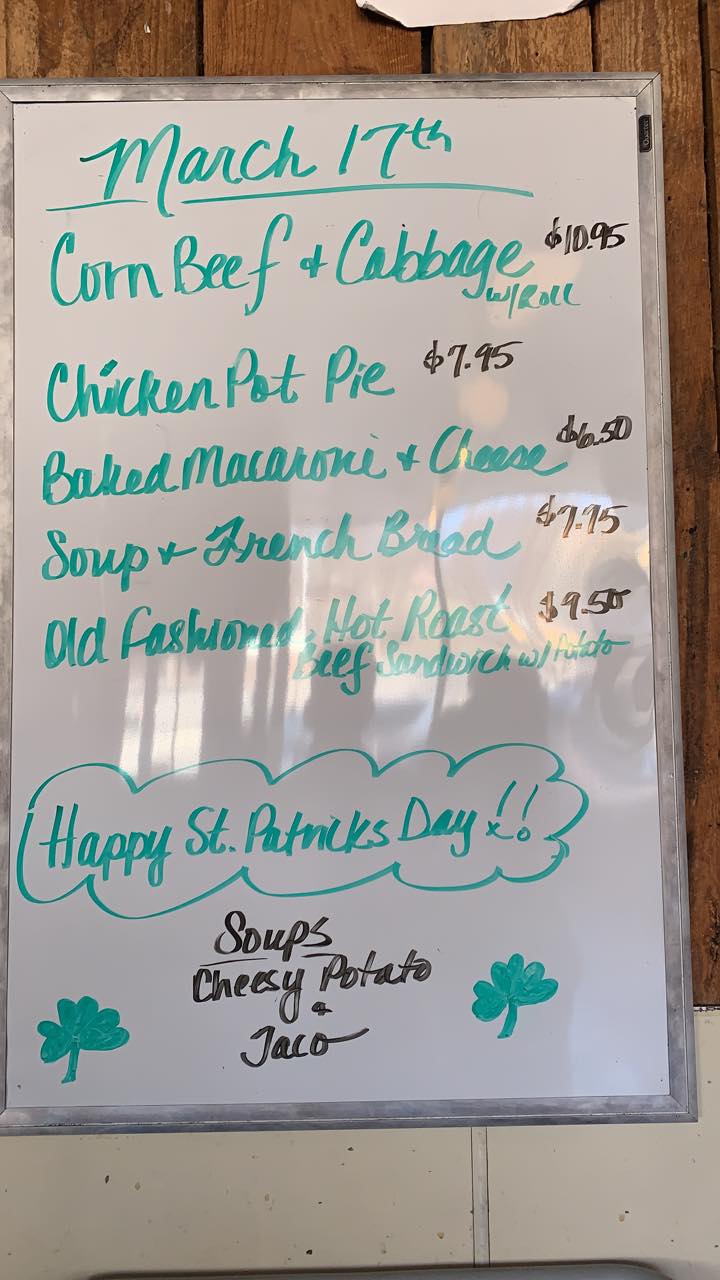 March 17th
Corn Beef & Cabbage $10.95
w/Roll
Chicken Pot Pie $7.95
Baked Macaroni & Cheese $6.50
Soup & French Bread $7.95
Old Fashioned Hot Roast $9.50
Beef Sandwich w/ Potato
Happy St. Patricks Day!!
Soups
Cheesy Potato
&
Taco